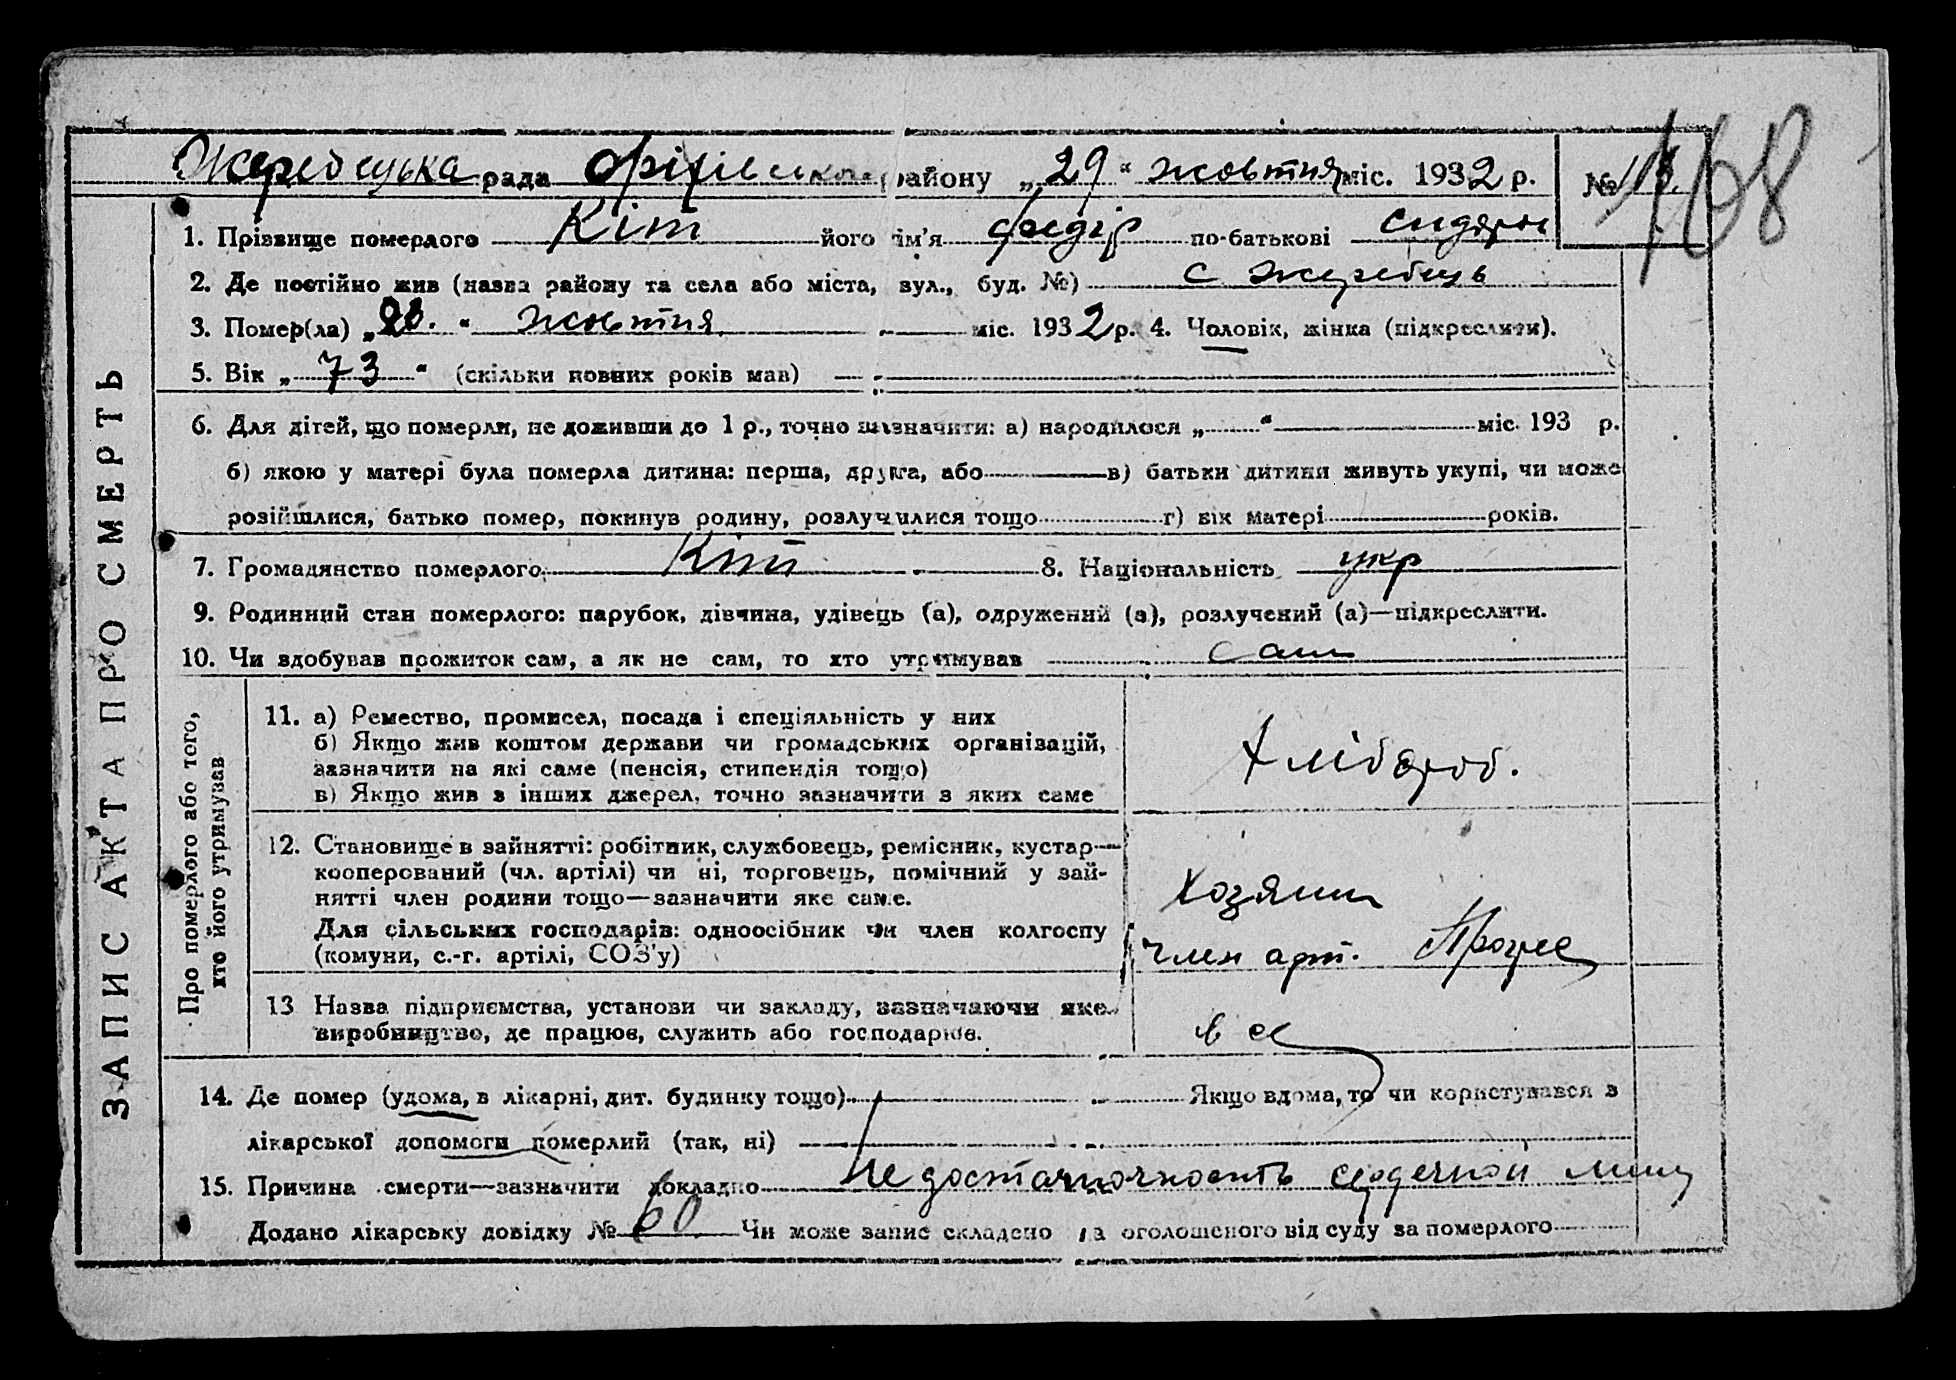 Жеребецька рада Оріхівського району „29“ жовтня міс. 1932 р. №
168
1. Прізвище померлого Кіт його ім'я Федір по-батькові Сидоров
2. Де постійно жив (назва району та села або міста, вул., буд. №) с Жеребець
3. Помер(ла) „28.“ жовтня міс. 1932 р. 4. Чоловік, жінка (підкреслити).
5. Вік „73“ (скільки повних років мав)
6. Для дітей, що померли, не доживши до 1 р., точно зазначити: а) народилося „ “ міс. 193 р.
б) якою у матері була померла дитина: перша, друга, або в) батьки дитини живуть укупі, чи може
розійшлися, батько помер, покинув родину, розлучилися тощо г) вік матері років.
7. Громадянство померлого: Кіт 8. Національність укр
9. Родинний стан померлого: парубок, дівчина, удівець (а), одружений (а), розлучений (а)—підкреслити.
10. Чи здобував прожиток сам, а як не сам, то хто утримував сам
ЗАПИС АКТА ПРО СМЕРТЬ
Про померлого або того,
хто його утримував
11. а) Ремество, промисел, посада і спеціяльність у них
б) Якщо жив коштом держави чи громадських організацій,
зазначити на які саме (пенсія, стипендія тощо)
в) Якщо жив з інших джерел, точно зазначити з яких саме
Хлібороб.
12. Становище в зайнятті: робітник, службовець, ремісник, кустар—
кооперований (чл. артілі) чи ні, торговець, помічний у зай-
нятті член родини тощо—зазначити яке саме.
Для сільських господарів: одноосібник чи член колгоспу
(комуни, с.-г. артілі, СОЗ'у)
Хозяин
Член арт. Прогрес
13 Назва підприємства, установи чи закладу, зазначаючи яке
виробництво, де працює, служить або господарює.
14. Де помер (удома, в лікарні, дит. будинку тощо) Якщо вдома, то чи користувався з
лікарської допомоги померлий (так, ні)
15. Причина смерти—зазначити докладно Недостаточность сердечной мышц
Додано лікарську довідку № 60 Чи може запис складено на оголошеного від суду за померлого